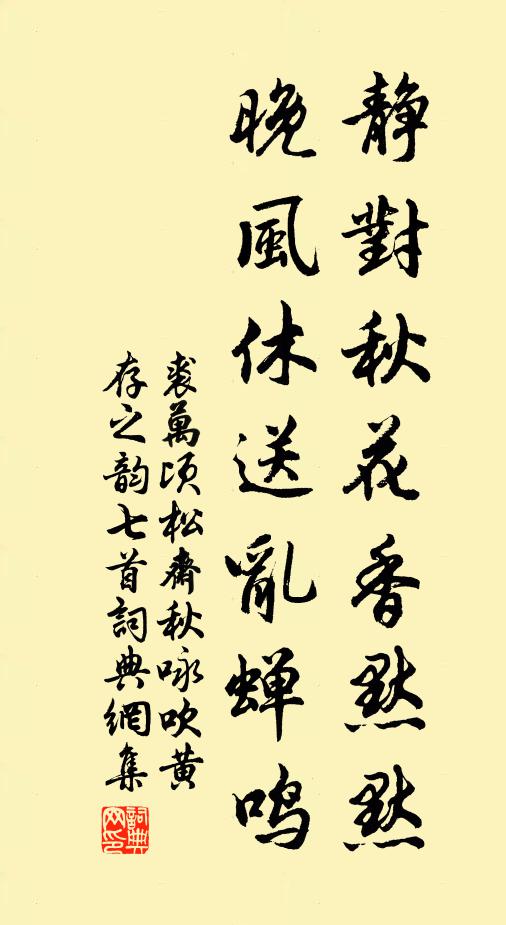 靜對秋花香默默
晚風休送亂蟬鳴
裘萬頃松齋秋咏吹黄
存之韵七首詞典網集
詞典網印